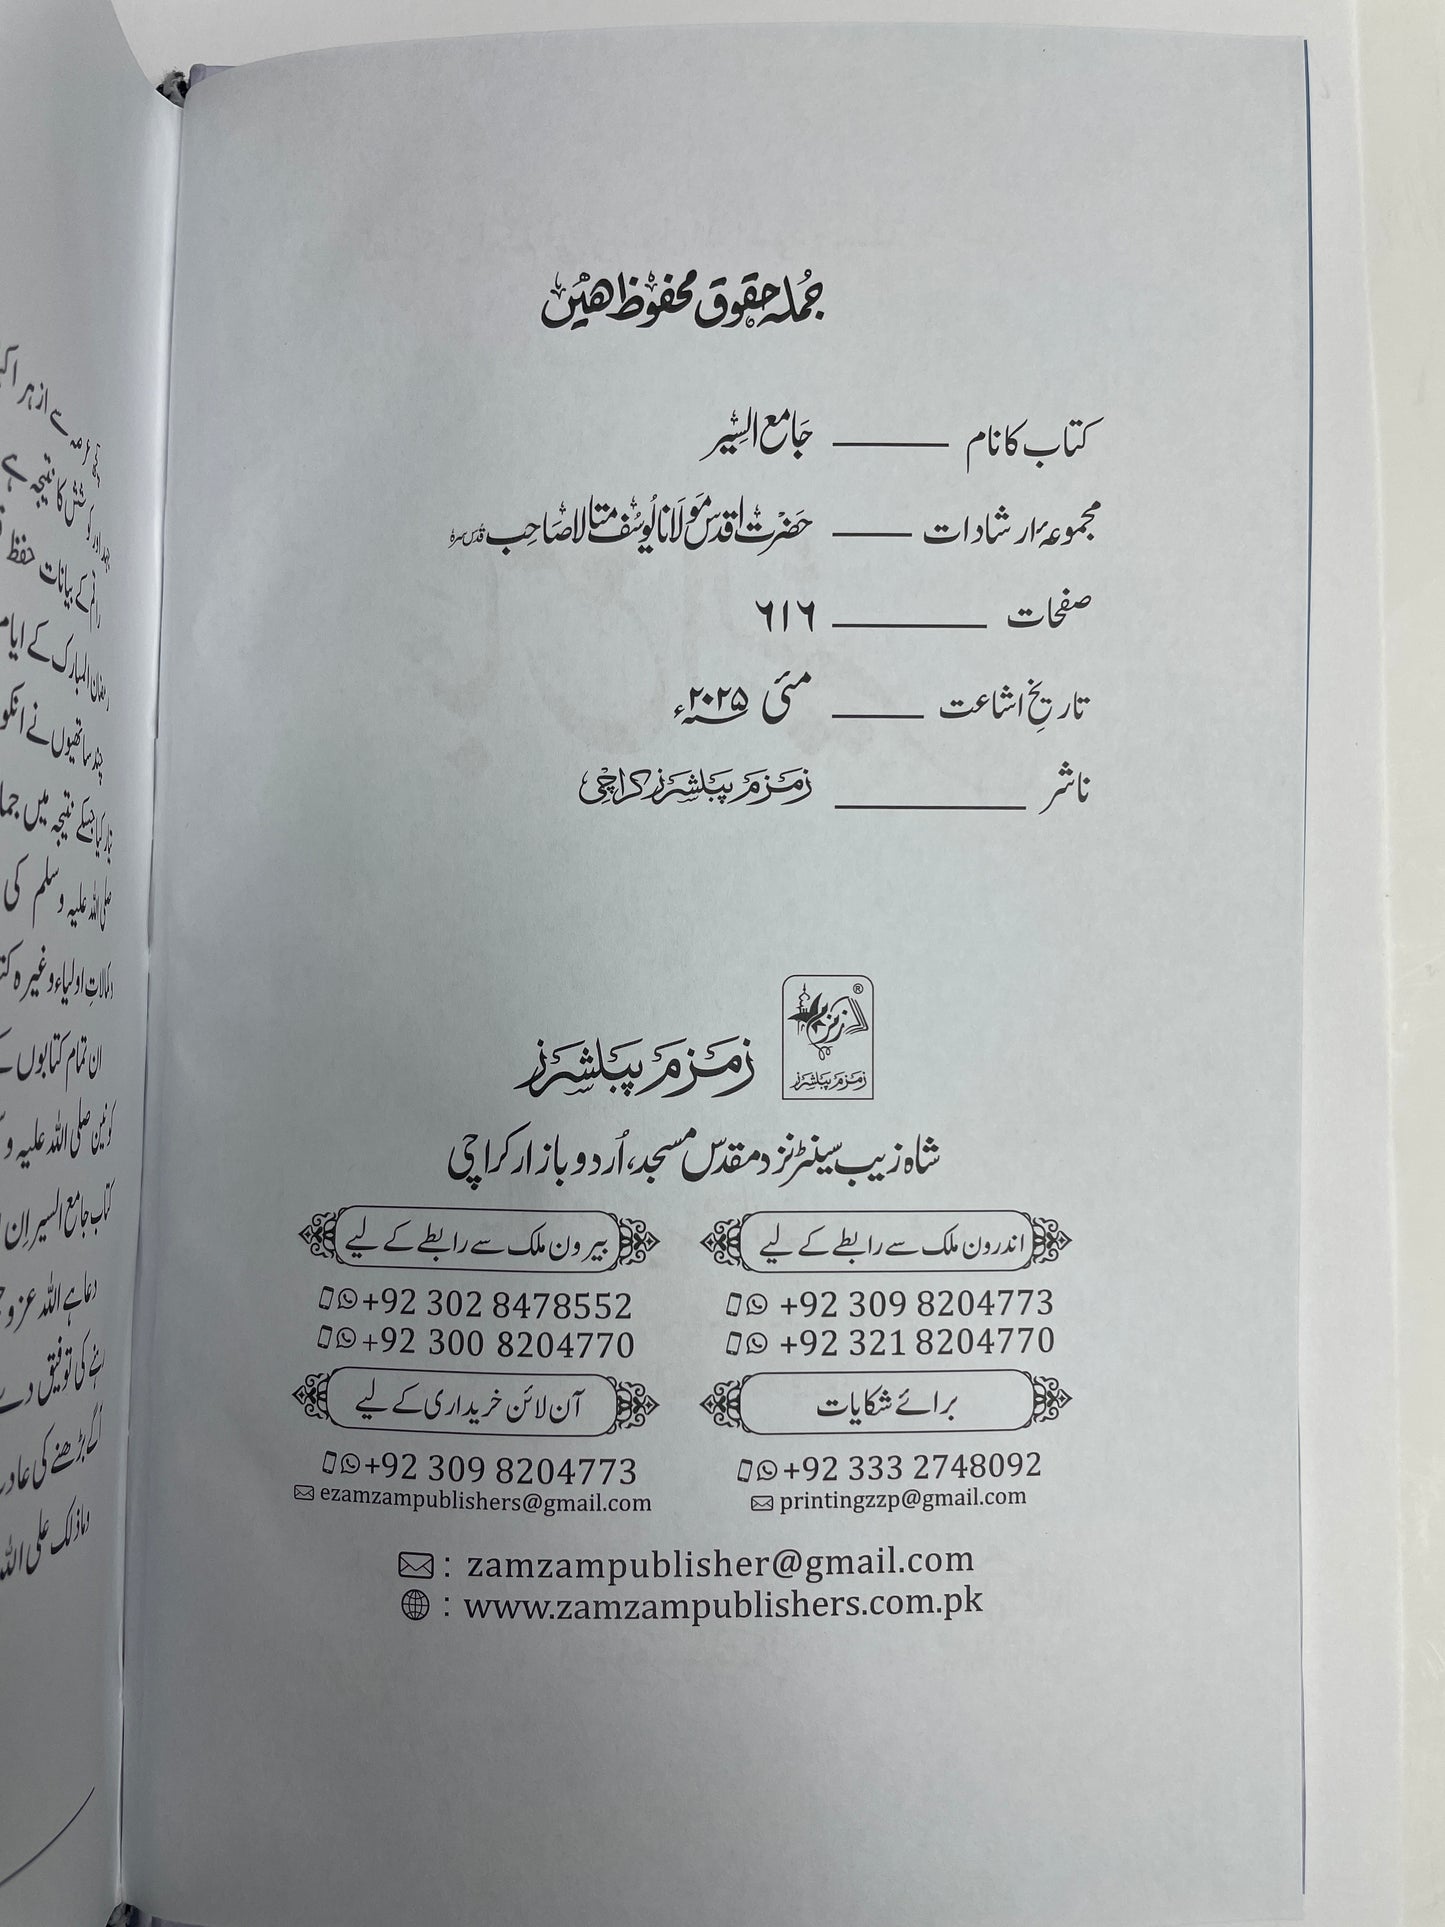 جملہ حقوق محفوظ ہیں
کتاب کا نام ـــــــ جامع السیر
مجموعۂ ارشادات ـــــــ حضرت اقدس مولانا یوسف متالا صاحب قدس سرہ
صفحات ـــــــ ٦١٦
تاریخ اشاعت ـــــــ مئی ۲۰۲۵ء
ناشر ـــــــ زمزم پبلشرز کراچی
زمزم
®
زمزم پبلشرز
زمزم پبلشرز
شاہ زیب سینٹر نزد مقدس مسجد، اُردو بازار کراچی
اندرون ملک سے رابطے کے لیے
+92 309 8204773
+92 321 8204770
بیرون ملک سے رابطے کے لیے
+92 302 8478552
+92 300 8204770
برائے شکایات
+92 333 2748092
printingzzp@gmail.com
آن لائن خریداری کے لیے
+92 309 8204773
ezamzampublishers@gmail.com
: zamzampublisher@gmail.com
: www.zamzampublishers.com.pk
کا نتیجہ ہے
کے بیانات حفظ
المبارک کے ایام
ساتھیوں نے انکو
نتیجہ میں
صلی اللہ علیہ وسلم کی
اولیاء وغیرہ
ان تمام کتابوں
کونین صلی اللہ علیہ و
کتاب جامع السیر اِن
دعا ہے اللہ عز و
کی توفیق دے
بڑھنے کی
وماذلک علی اللہ